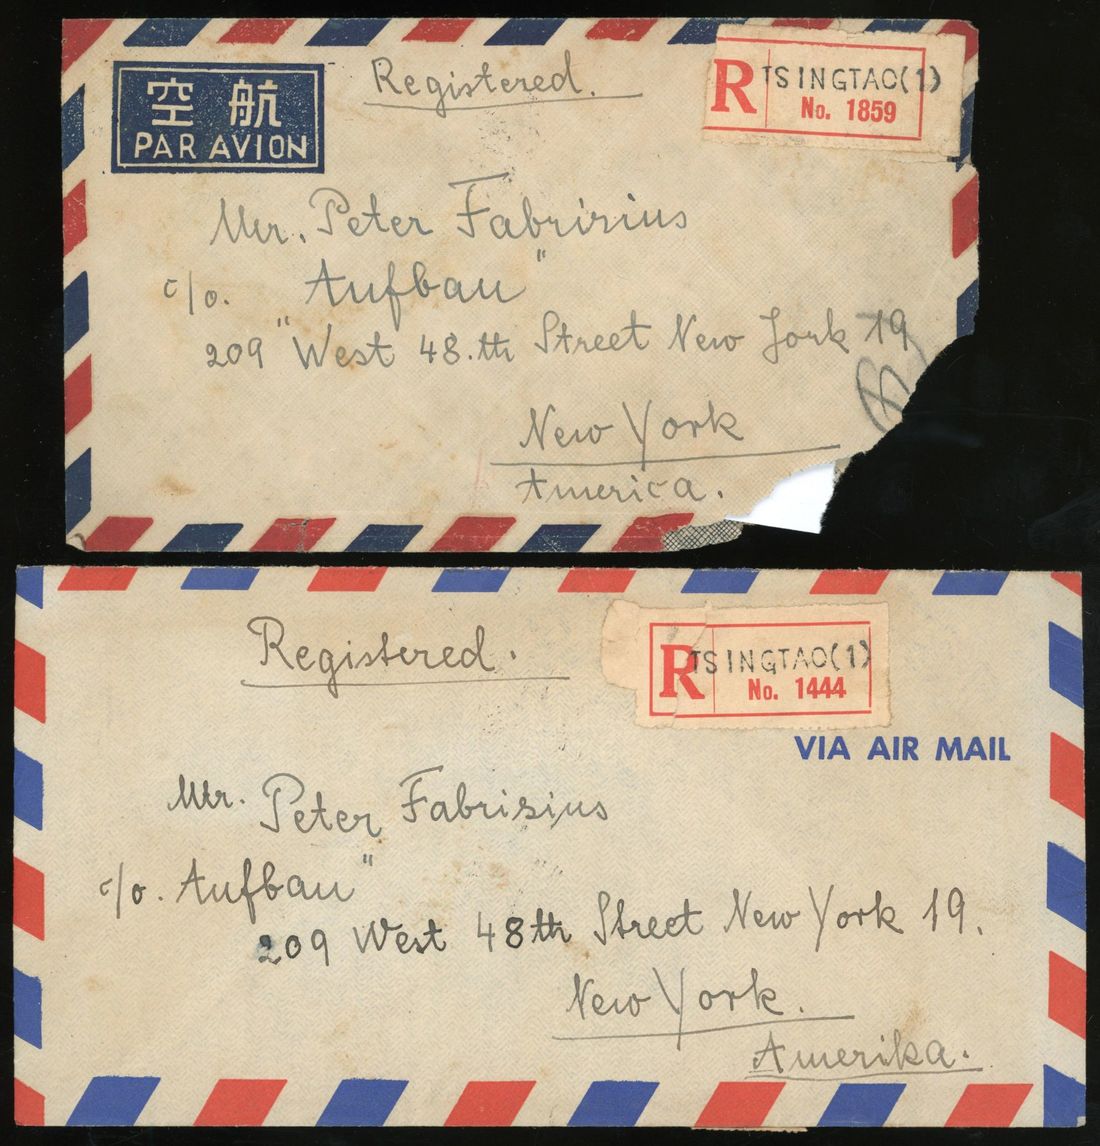 空 航
PAR AVION
Registered.
R TSINGTAO(1)
No. 1859
Mr. Peter Fabrisius
c/o. Aufbau"
209 "West 48.th Street New York 19
New York
America.
Registered.
R TSINGTAO(1)
No. 1444
VIA AIR MAIL
Mr. Peter Fabrisius
c/o. Aufbau"
209 West 48th Street New York 19.
New York.
Amerika.